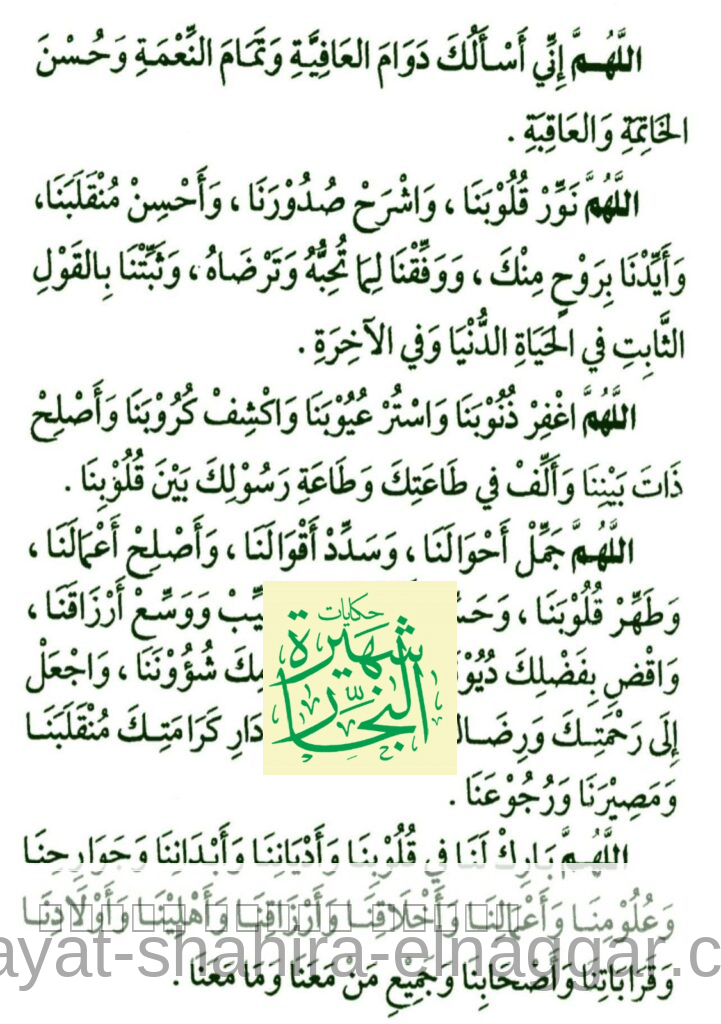 اللَّهُمَّ إِنِّي أَسْأَلُكَ دَوَامَ العَافِيَّةِ وَتَمَامَ النِّعْمَةِ وَحُسْنَ
الخَاتِمَةِ وَالعَاقِبَةِ .
اللَّهُمَّ نَوِّرْ قُلُوْبَنَا ، وَاشْرَحْ صُدُوْرَنَا ، وَأَحْسِنْ مُنْقَلَبَنَا،
وَأَيِّدْنَا بِرَوْحٍ مِنْكَ ، وَوَفِّقْنَا لِمَا تُحِبُّهُ وَتَرْضَاهُ ، وَثَبِّتْنَا بِالقَوْلِ
الثَّابِتِ فِي الْحَيَاةِ الدُّنْيَا وَفِي الآخِرَةِ .
اللَّهُمَّ اغْفِرْ ذُنُوْبَنَا وَاسْتُرْ عُيُوْبَنَا وَاكْشِفْ كُرُوْبَنَا وَأَصْلِحْ
ذَاتَ بَيْنِنَا وَأَلِّفْ فِي طَاعَتِكَ وَطَاعَةِ رَسُوْلِكَ بَيْنَ قُلُوْبِنَا .
اللَّهُمَّ جَمِّلْ أَحْوَالَنَا ، وَسَدِّدْ أَقْوَالَنَا ، وَأَصْلِحْ أَعْمَالَنَا ،
وَطَهِّرْ قُلُوْبَنَا ، وَوَسِّعْ أَرْزَاقَنَا ،
وَاقْضِ بِفَضْلِكَ شُؤُوْنَنَا ، وَاجْعَلْ
إِلَى رَحْمَتِكَ دَارِ كَرَامَتِكَ مُنْقَلَبَنَا
حكايات
شهيرة
النجار
وَمَصِيْرَنَا وَرُجُوْعَنَا .
اللَّهُمَّ بَارِكْ لَنَا فِي قُلُوْبِنَا وَأَدْيَانِنَا وَأَبْدَانِنَا وَجَوَارِحِنَا
وَعُلُوْمِنَا وَأَعْمَالِنَا وَأَخْلَاقِنَا وَأَرْزَاقِنَا وَأَهْلِيْنَا وَأَوْلَادِنَا
ayat-shahira-elnaggar.c
وَقَرَابَاتِنَا وَأَصْحَابِنَا وَجَمِيْعِ مَنْ مَعَنَا وَمَا مَعَنَا .